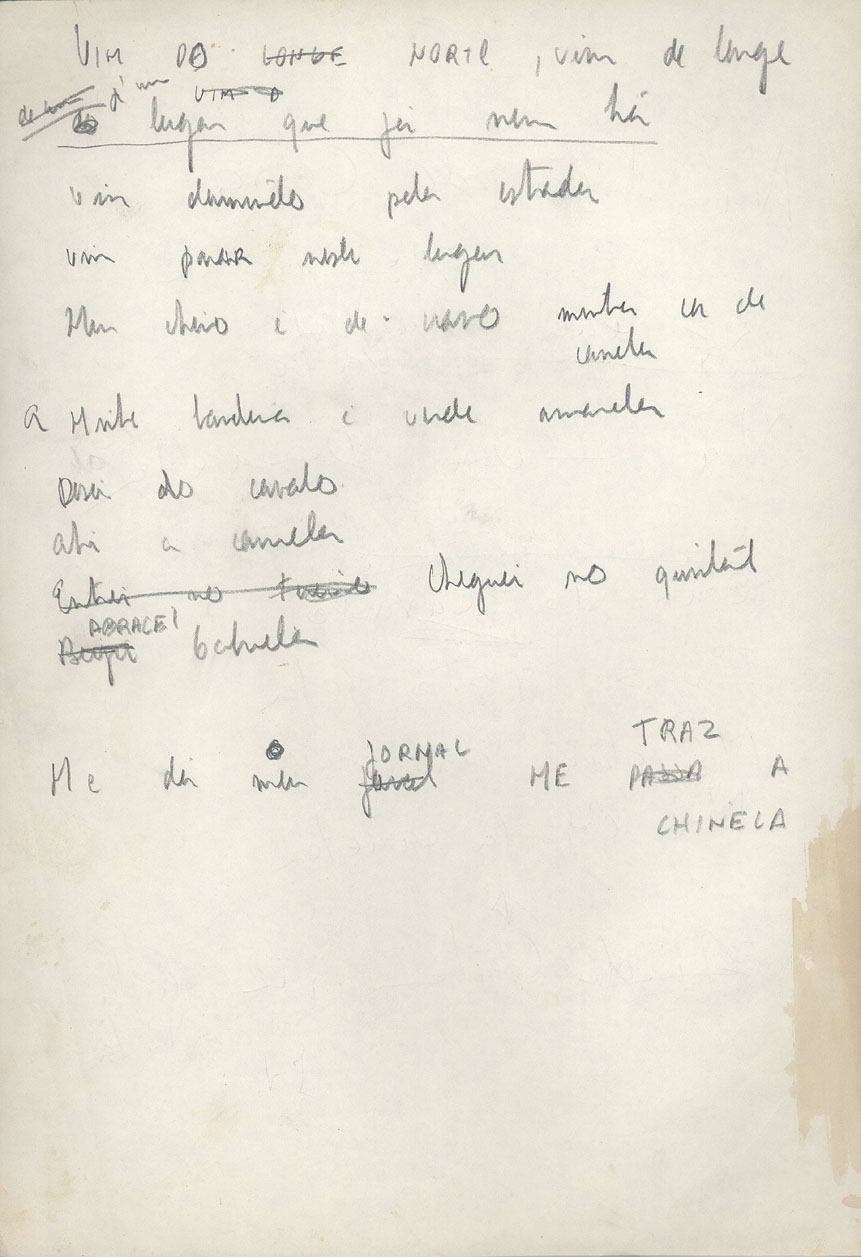 VIM DO LONGE NORTE, vim de longe
d'um VIM D
lugar que já nem há
vim dormindo pela estrada
vim parar neste lugar
Meu cheiro é de cravo minha cor de
canela
A Minha bandeira é verde amarela
Desci do cavalo
abri a cancela
Entrei no cheguei no quintal
ABRACEI
Beijei Gabriela
TRAZ
o JORNAL
Me dá meu jornal ME PASSA A
CHINELA